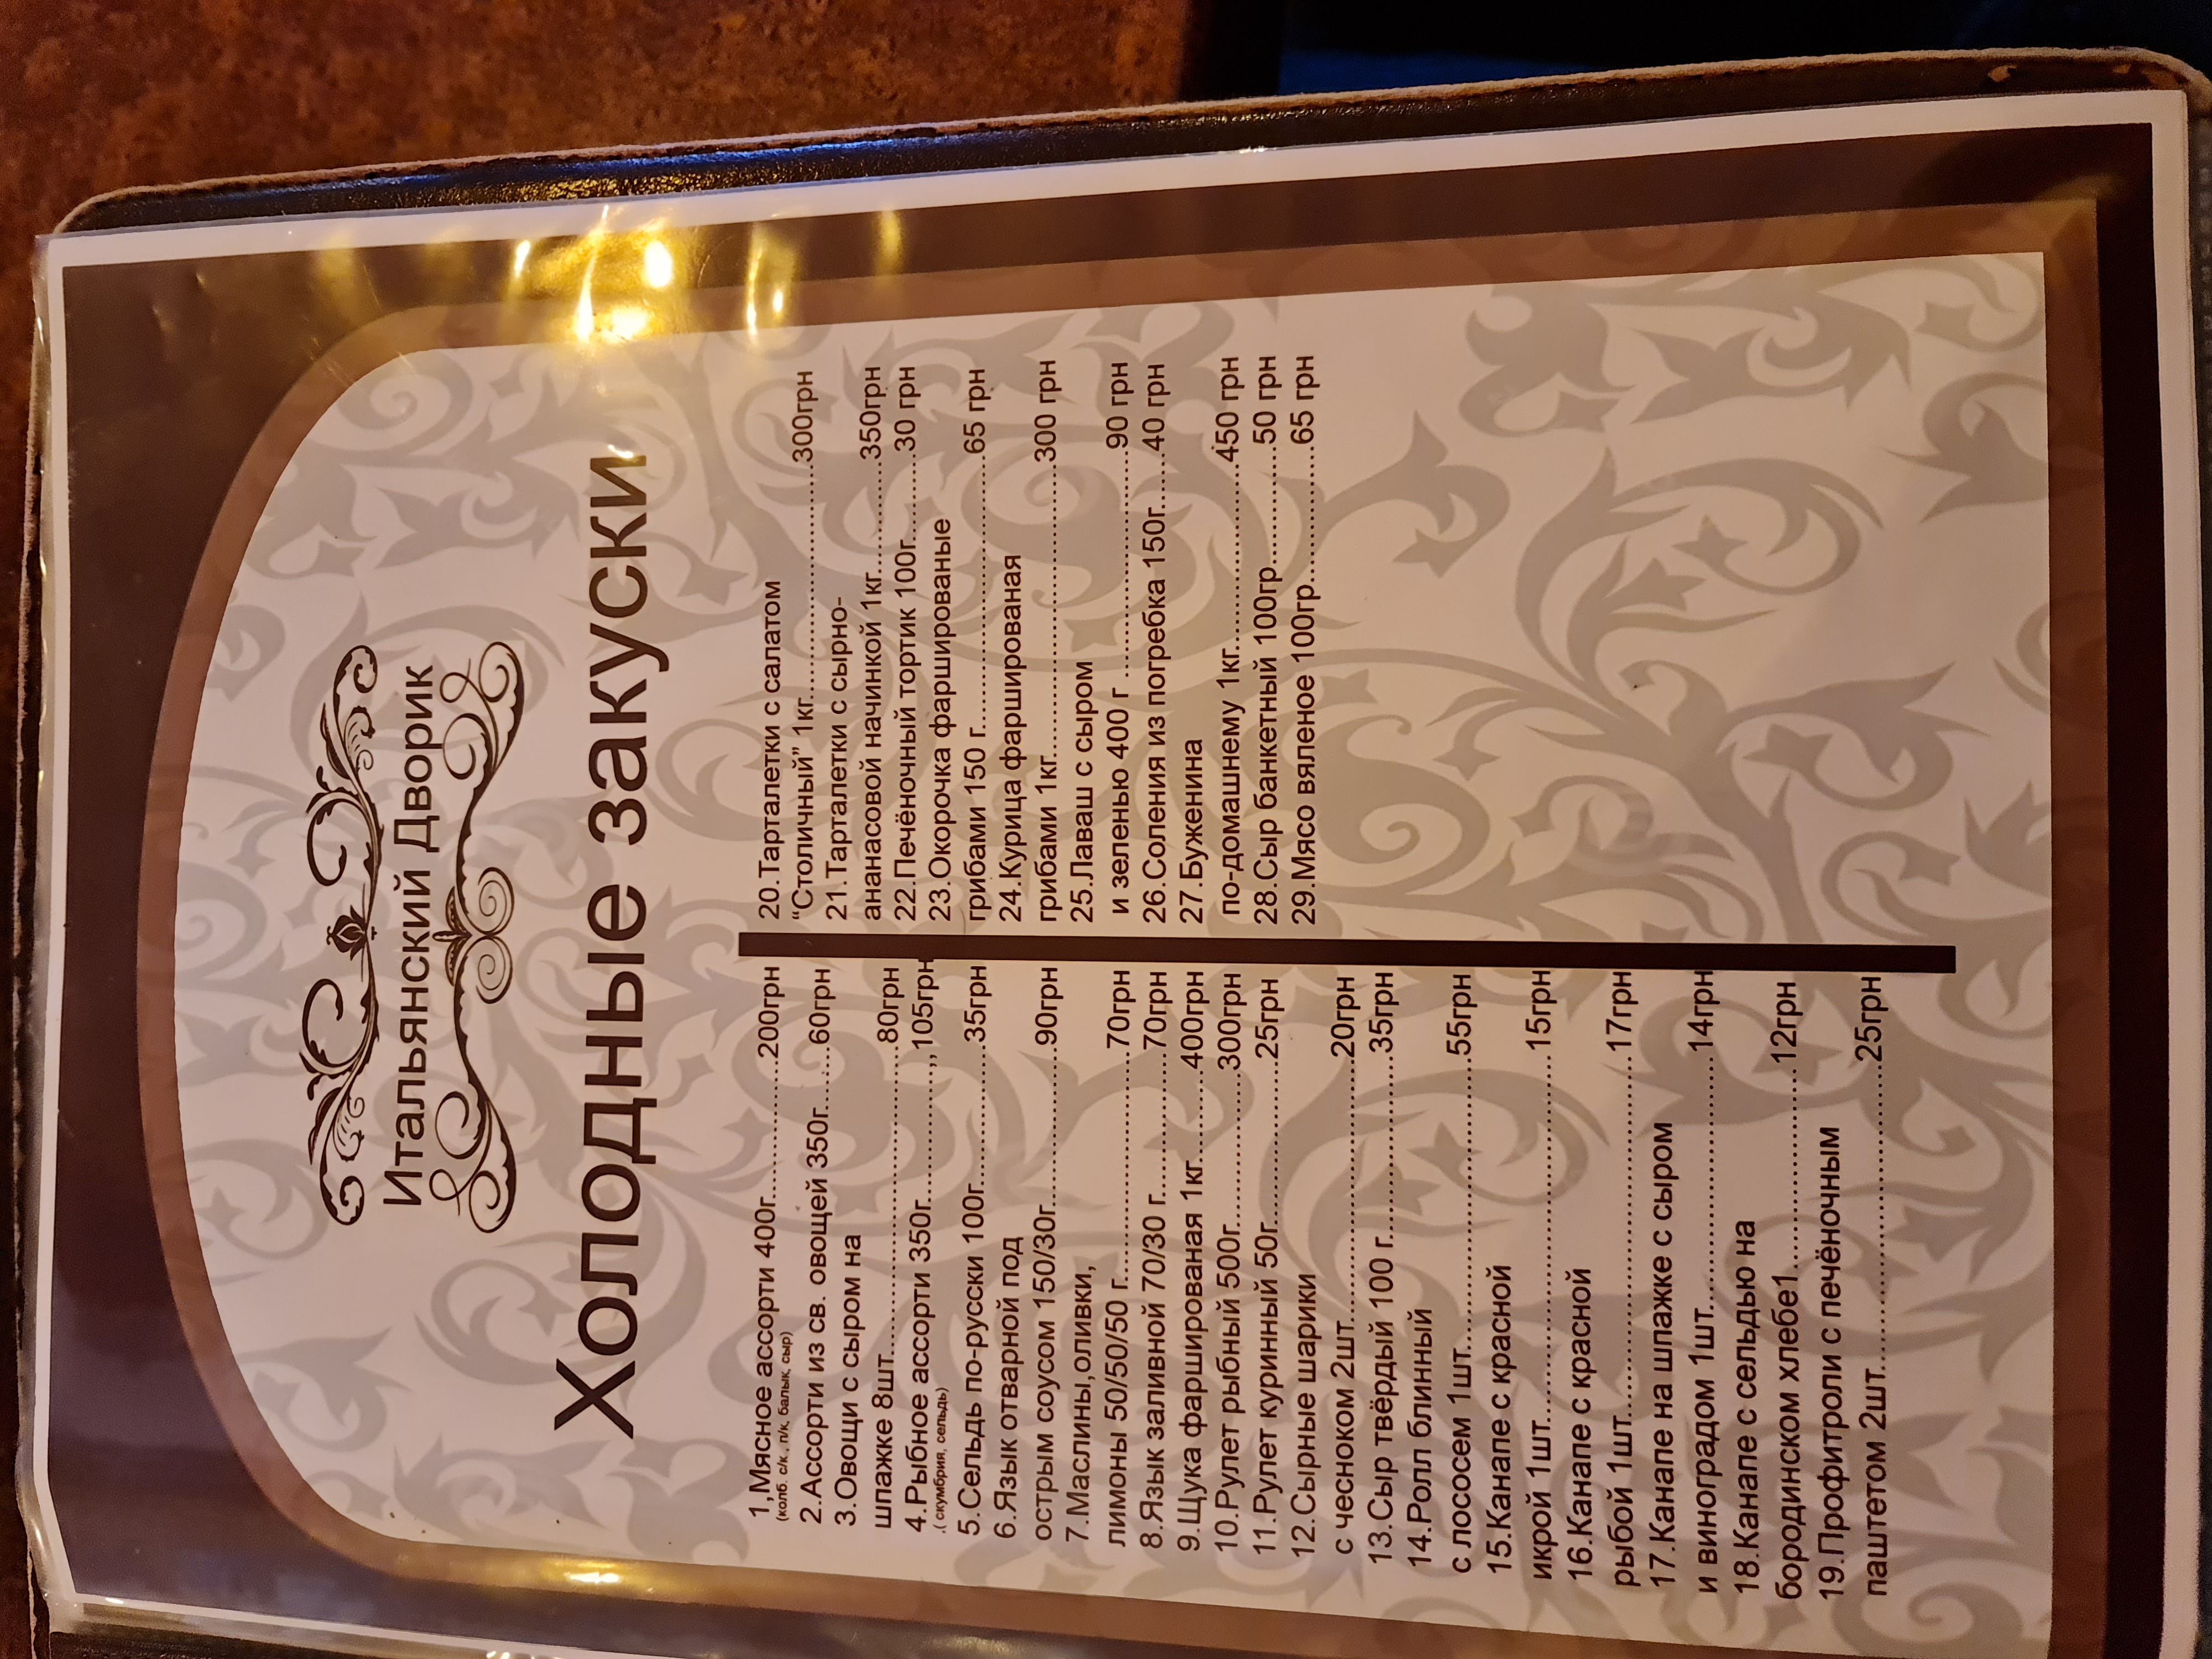 Итальянский Дворик
Холодные закуски
1,Мясное ассорти 400г...............200грн
(колб. с/к., п/к, балык, сыр)
2.Ассорти из св. овощей 350г.......60грн
3.Овощи с сыром на
шпажке 8шт...............................80грн
4.Рыбное ассорти 350г..............,,105грн
.( скумбрия, сельдь)
5.Сельдь по-русски 100г..............35грн
6.Язык отварной под
острым соусом 150/30г................90грн
7.Маслины,оливки,
лимоны 50/50/50 г.......................70грн
8.Язык заливной 70/30 г...............70грн
9.Щука фаршированая 1кг.........400грн
10.Рулет рыбный 500г................300грн
11.Рулет куринный 50г.................25грн
12.Сырные шарики
с чесноком 2шт..........................20грн
13.Сыр твёрдый 100 г..................35грн
14.Ролл блинный
с лососем 1шт.............................55грн
15.Канапе с красной
икрой 1шт...................................15грн
16.Канапе с красной
рыбой 1шт...................................17грн
17.Канапе на шпажке с сыром
и виноградом 1шт.......................14грн
18.Канапе с сельдью на
бородинском хлебе1....................12грн
19.Профитроли с печёночным
паштетом 2шт..............................25грн
20.Тарталетки с салатом
“Столичный” 1кг........................300грн
21.Тарталетки с сырно-
ананасовой начинкой 1кг...........350грн
22.Печёночный тортик 100г........30 грн
23.Окорочка фаршированые
грибами 150 г...........................65 грн
24.Курица фаршированая
грибами 1кг.............................300 грн
25.Лаваш с сыром
и зеленью 400 г .......................90 грн
26.Соления из погребка 150г......40 грн
27.Буженина
по-домашнему 1кг...................450 грн
28.Сыр банкетный 100гр............50 грн
29.Мясо вяленое 100гр..............65 грн